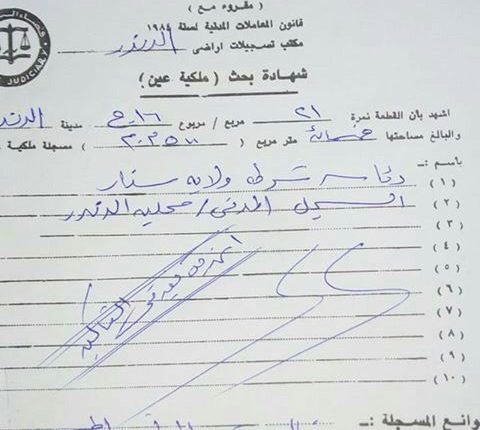 ( مقروء مع )
قانون المعاملات المدنية لسنة ١٩٨٤
مكتب تسجيلات اراضى / الدندر
JUDICIARY
شهادة بحث ( ملكية عين )
اشهد بأن القطعة نمرة ٢١ مربع / مربوع ١٦ ح مدينة الدندر
والبالغ مساحتها خمسمائة متر مربع ( ٥٠٠ م.م ) مسجلة ملكية
باسم :ـ
(١) رئاسة شرطة ولاية سنار
(٢) السجل المدنى / محلية الدندر
(٣)
(٤)
(٥)
(٦)
(٧)
(٨)
(٩)
(١٠)
وانع المسجلة :ـ